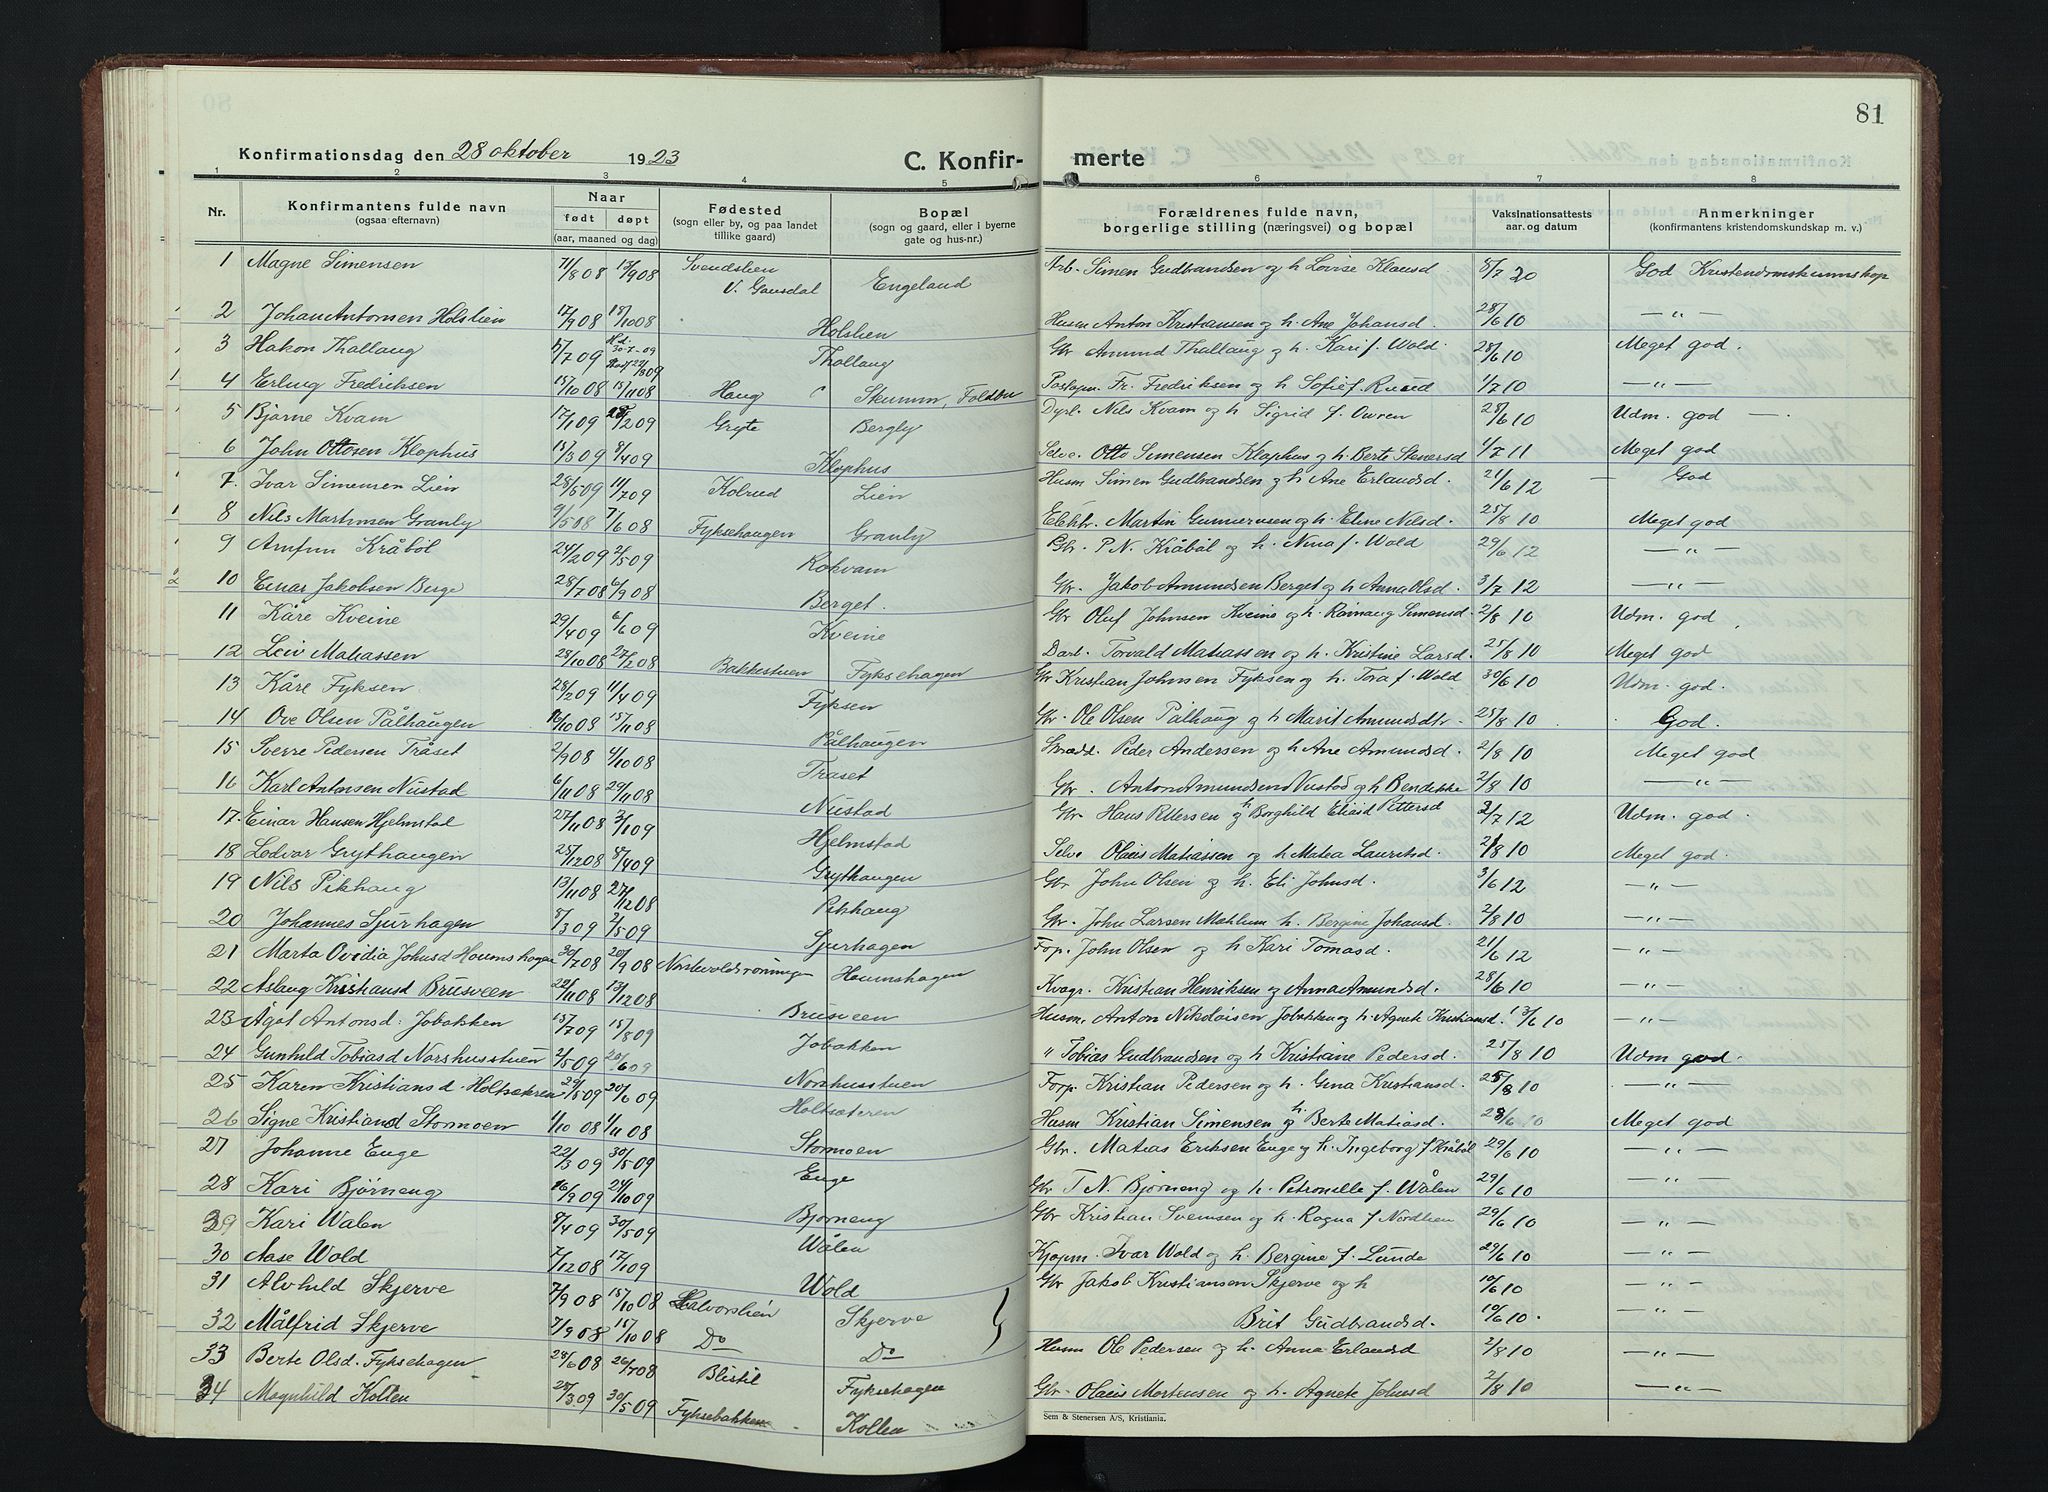 81
Konfirmationsdag den 28 oktober 1923 C. Konfir- merte
1 2 3 4 5 6 7 8
Nr. Konfirmantens fulde navn (ogsaa efternavn) Naar født døpt (aar, maaned og dag) Fødested (sogn eller by, og paa landet tillike gaard) Bopæl (sogn og gaard, eller i byerne gate og hus-nr.) Forældrenes fulde navn, borgerlige stilling (næringsvei) og bopæl Vaksinationsattests aar og datum Anmerkninger (konfirmantens kristendomskundskap m. v.)
1 Magne Simensen 7/8 08 13/9 08 Svendslien V. Gausdal Engeland Arb. Simen Gudbrandsen og h Lovise Klausd 8/7 20 God Kristendomskunnskap
2 Johan Antonsen Holslien 17/9 08 18/10 08 Holslien Husm Anton Kristiansen og h. Ane Johansd. 28/6 10 — " —
3 Hakon Thallaug 5/7 09 Thallaug Gbr Amund Thallaug og h. Kari f. Wold. 28/6 10 Meget god.
4 Erling Fredriksen 15/10 08 15/11 08 Haug Skumm, Foldbu Postepn. Fr. Fredriksen og h Sofie f. Ruud 1/7 10 — " —
5 Bjarne Kvam 17/1 09 28/2 09 Gryte Bergly Dyrl. Nils Kvam og h Sigrid f. Owren 28/6 10 Udm. god —
6 John Ottosen Klophus 15/3 09 8/4 09 Klophus Selve. Otto Simensen Klophus og h. Berte Stenersd 1/7 11 Meget god
7. Ivar Simensen Lien 28/5 09 11/7 09 Kolrud Lien Husm Simen Gudbrandsen og h Ane Erlandsd. 21/6 12 — God
8 Nils Martinsen Granly 9/5 08 7/6 08 Fyksehaugen Granly Elektr. Martin Gunnersen og h. Eline Nilsd. 25/8 10 Meget god
9 Arnfinn Kråbøl 24/2 09 2/5 09 Kokvam Gbr. P. N. Kråbøl og h. Nina f. Wold 29/6 12 — " —
10 Einar Jakobsen Berge 28/7 08 6/9 08 Berget. Gbr. Jakob Amundsen Berget og h Anna Olsd. 3/7 12 — " —
11 Kåre Kveine 29/4 09 6/6 09 Kveine Gbr Oluf Johnsen Kveine og h. Rønnaug Simensd. 2/8 10 Udm. god
12 Leiv Matiassen 28/10 08 27/12 08 Bakkestuen Fyksehagen Darl. Torvald Matiassen og h. Kristine Larsd. 25/8 10 Meget god
13 Kåre Fyksen 28/2 09 11/4 09 Fyksen Gbr Kristian Johnsen Fyksen og h. Tora f. Wold 30/6 10 Udm. god.
14 Ove Olsen Pålhaugen 16/10 08 15/11 08 Pålhaugen Gbr. Ole Olsen Pålhaug og h Marit Amundsdtr. 25/8 10 God.
15 Sverre Pedersen Tråset 2/9 08 4/10 08 Tråset Smed. Peder Andersen og h Ane Amundsd. 2/8 10 Meget god
16 Karl Antonsen Nustad 6/11 08 29/11 08 Nustad Gbr. Anton Amundsen Nustad og h Bendikke 2/8 10 — " —
17. Einar Hansen Hjelmstad 27/11 08 3/1 09 Hjelmstad Gbr Hans Pettersen og h Borghild Eliasd Pettersd 3/7 12 Udm. god.
18 Lodvar Grythaugen 25/12 08 8/4 09 Grythaugen Selve Olaus Matiassen og h Matea Lauritsd. 2/8 10 Meget god.
19 Nils Pikhaug 13/11 08 27/12 08 Pikhaug Gbr John Olsen og h. Eli Johnsd. 3/6 12 — " —
20 Johannes Sjurhagen 8/3 09 2/5 09 Sjurhagen Gbr. John Larsen Mæhlum h. Bergine Johansd. 2/8 10 — " —
21 Marta Ovidia Johnsd Houmshagen 30/7 08 20/9 08 Norstevoldsrønningen Houmshagen Forp. John Olsen og h Kari Tomasd. 21/6 12 — " —
22 Aslaug Kristiansd Brusveen 22/11 08 13/12 08 Brusveen Kvagr. Kristian Henriksen og Anna Amundsd. 28/6 10 — " —
23 Ågot Antonsd. Jobakken 13/7 09 15/8 09 Jobakken Husm. Anton Nikolaisen Jobakken og h. Agnete Kristiansd. 13/6 10 — " —
24 Gunhild Tobiasd Norshusstuen 2/5 09 20/6 09 Norshusstuen " Tobias Gudbrandsen og h Kristiane Pedersd. 25/8 10 Udm god.
25 Karen Kristiansd. Holtsæteren 24/5 09 20/6 09 Holtsæteren Forp. Kristian Pedersen og h. Gina Kristiansd. 25/8 10 — " —
26 Signe Kristiansd Stormoen 1/10 08 1/11 08 Stormoen Husm Kristian Simensen og h. Berte Matiasd. 28/6 10 Meget god
27 Johanne Enge 22/3 09 30/5 09 Enge Gbr. Matias Eriksen Enge og h. Ingeborg f Kråbøl 29/6 10 — " —
28 Kari Bjørneng 16/9 09 24/10 09 Bjørneng Gbr T. N. Bjørneng og h. Petronelle f. Wålen 29/6 10 — " —
29 Kari Walen 8/4 09 30/5 09 Wålen Gbr Kristian Svensen og h. Ragna f Nordlien 29/6 10 — " —
30 Aase Wold 7/12 08 17/1 09 Wold Kjøpm. Ivar Wold og h. Bergine f. Lunde 29/6 10 — " —
31 Alvhild Skjerve 7/9 08 15/10 08 Halvorslien Skjerve Gbr Jakob Kristiansen Skjerve og h 10/6 10 — " —
32 Målfrid Skjerve 7/9 08 15/10 08 Do Do Brit Gudbrandsd. 10/6 10. — " —
33 Berte Olsd. Fyksehagen 28/6 08 26/7 08 Blistil Fyksehagen Husm Ole Pedersen og h. Anna Erlandsd 2/8 10 — " —
34 Magnhild Kollen 28/3 09 30/5 09 Fyksebakken Kollen Gbr. Olaus Mortensen og h. Agnete Johnsd 2/8 10 — " —
Sem & Stenersen A/S, Kristiania.